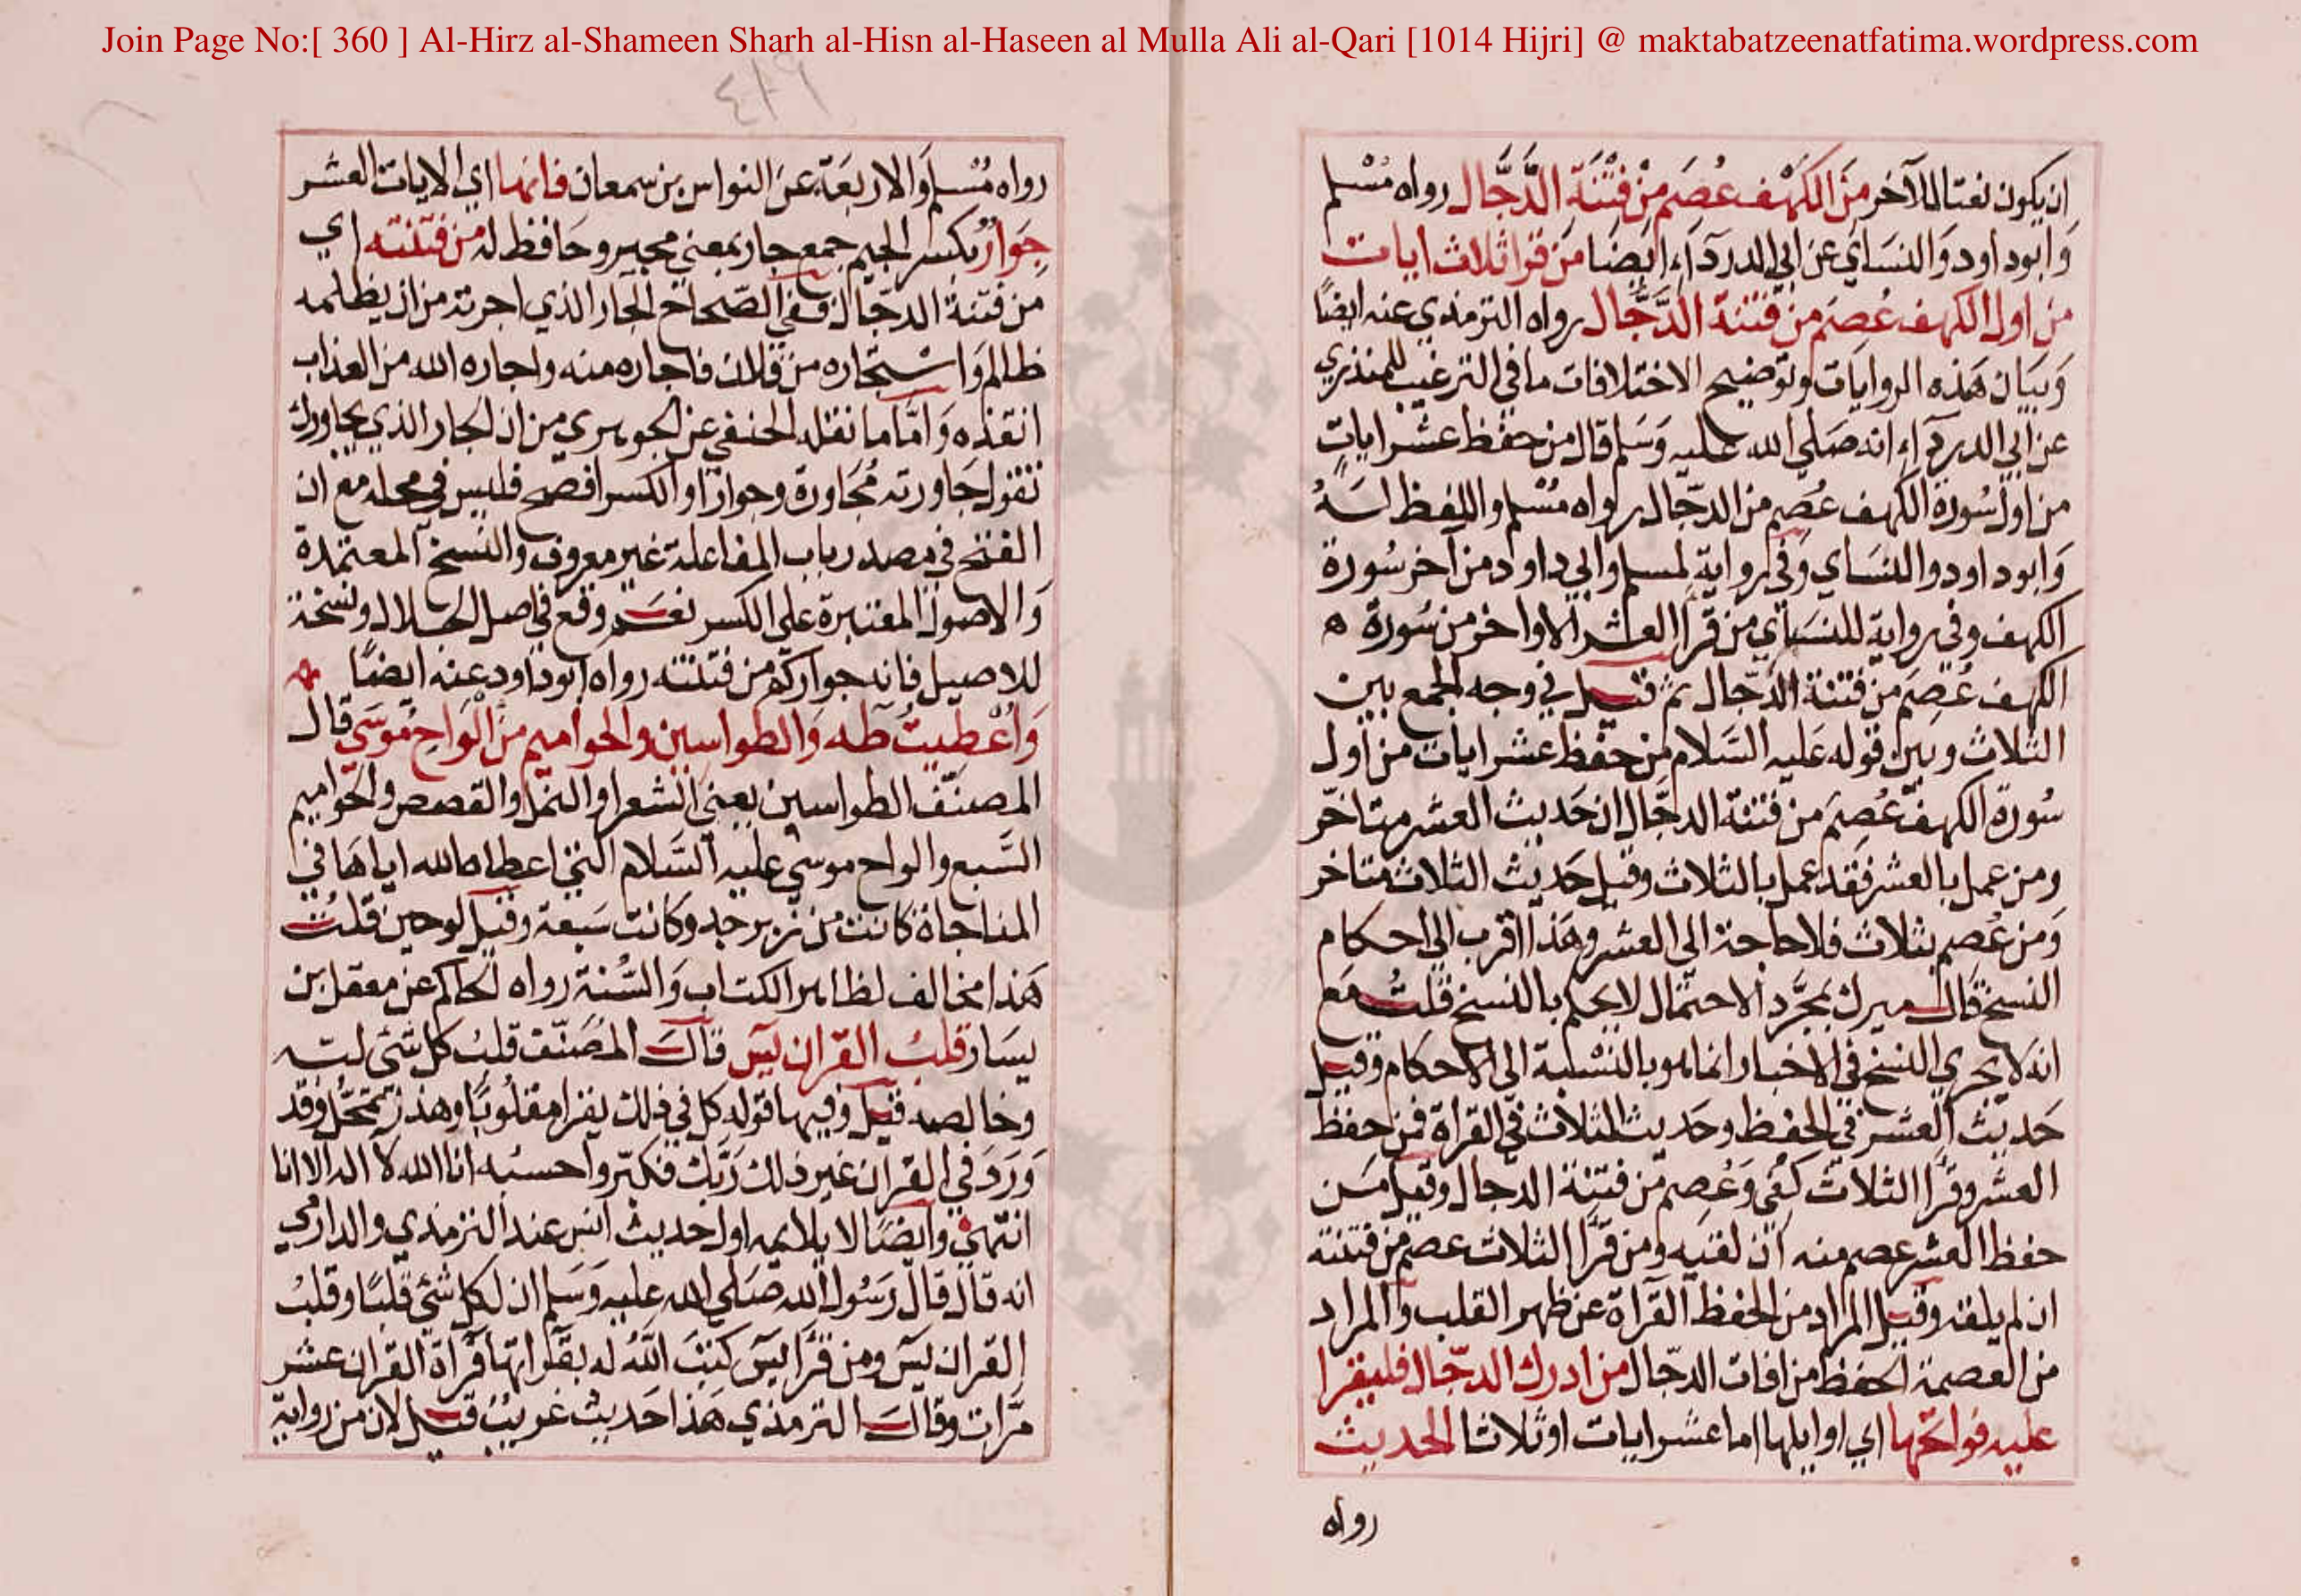 Join Page No:[ 360 ] Al-Hirz al-Shameen Sharh al-Hisn al-Haseen al Mulla Ali al-Qari [1014 Hijri] @ maktabatzeenatfatima.wordpress.com
٤١٩
ان يكون نعتا للآخر مَن الكهف عُصِمَ مِنْ فِتْنَة الدَّجَّال رواه مُسْلم
وَابوداود وَالنسَاي عن ابي الدردَآء ايضَا مَن قرا ثلاث ايات
من اول الكهف عُصِم من فتنة الدَّجَّال رواه الترمذي عنه ايضًا
وَبيَان هَذه الروايَات وتوضيح الاختلافات ما في الترغيب للمنذري
عن ابي الدردآء انه صَلي الله عليه وَسَلم قال من حفظ عشر اياتٍ
من اول سُورة الكهف عُصِم من الدجّال رواه مُسْلم واللفظ لَهُ
وَابوداود والنسَاي وَفي رواية لمسلم وابي داود من آخر سُورة
الكهف وفي رواية للنسَاي من قرا العشر الاواخر من سُورة ه
الكهف عُصِمَ من فتنة الدجّال ثم قيل في وجه الجمع بين
الثلاث وبين قوله عَليه السَّلام من حفظ عشر ايات من اول
سُورة الكهف عُصِمَ من فتنة الدجَّال ان حَديث العشر متاخر
ومن عمل بالعشر فقد عمل بالثلاث وقيل حَديث الثلاث متاخر
وَمن عُصِم بثلاث فلا حاجة الى العشر وهَذا اقرب الي احكام
النسخ قال ميرك بمجَّرد الاحتمال لا يحكم بالنسخ قلتُ مَع
انه لا يجري النسخ في الاخبار انما هو بالنسْبة الى الاحكام وقيل
حَديث العشر في الحفظ وحَديث الثلاث في القراة فمن حفظ
العشر وقرَا الثلاث كُفِي وَعُصِم من فتنة الدجال وقيل مَن
حفظ العشر عصم منه ان لقيه ومن قرَا الثلاث عصم من فتنته
ان لم يلقه وقيل المراد من الحفظ القراة عن ظهر القلب والمراد
من العصمة الحفظ من افات الدجّال من ادرك الدجّال فليقرا
عليه فواتحها اي اوايلها اما عشر ايات او ثلاثا الحديث
رواه
رواه مُسْلم وَالاربَعَة عن النواس بن سمعان فانها اي الايات العشر
جِوَارٌ بكسر الجيم جمع جار بمعنى مجير وحَافظ له من فتنته اي
من فتنة الدجّال ففي الصّحاح الجار الذي اجرته من ان يظلمه
ظالم وَاسْتجاره من فلان فاجاره منه واجاره الله من العذاب
انقذه وَامَّا ما نقله الحنفي عن الجوهري من ان الجار الذي يجاورك
تقول جَاورته مُجَاورة وجوارًا والكسر افصح فليس في محله مع ان
الفتح في مصدر باب المفاعلة غير معروف والنسخ المعتمدة
وَالاصول المعتبرة على الكسر نعَم وقع في اصل الجلال ونسخة
للاصيل فانه جواركم من فتنته رواه ابوداود عنه ايضًا
وَاُعْطيتُ طه وَالطواسين والحواميم مِنَ الْوَاحِ مُوسَي قال
المصنّف الطواسين يعني الشعرا والنمل والقصص والحواميم
السَّبع والواح موسَي عليه السَّلام التي اعطاه الله اياهَا في
المناجاة كانت من زبرجد وكانت سَبعة وقيل لوحين قلتُ
هَذا مخالف لظاهر الكتاب وَالسُّنة رواه الحاكم عن معقل بن
يسَار قلبُ القران يسَ قال المُصَنّف قلبُ كل شَئ لبّه
وخالصه قيل وفيها قوله كل في فلك يقرا مقلُوبًا وهذا تمحّل وقد
وَرَدَ في القران غير ذلك رَبَّك فكبّر واحسبُه انا الله لا اله الا انا
انتهي وايضَا لا يلايمه اول حديث انس عند الترمذي والدارمي
انه قال قال رَسُول الله صَلي الله عليه وَسَلم ان لكل شَئ قلبًا وقلبُ
القران يسَ ومن قرَا يسَ كتبَ اللهُ له بقرَاتها قرَاة القران عشر
مرَّات وقالَ الترمذي هَذا حَديث غريبٌ قيل لان من رواية